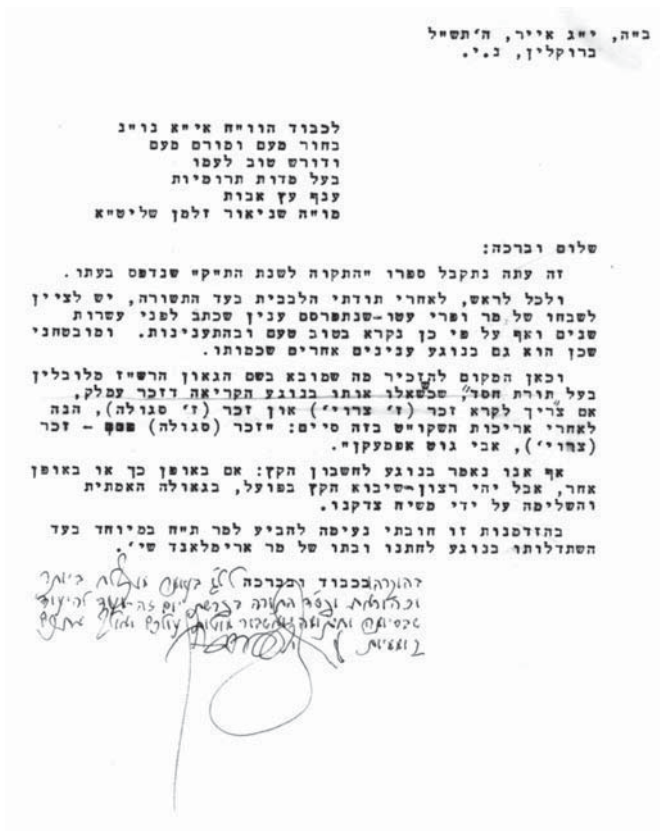 ב"ה, י"ג אייר, ה'תש"ל
ברוקלין, נ.י.
לכבוד הוו"ח אי"א נו"נ
בחור מעם ומורם מעם
ודורש טוב לעמו
בעל מדות תרומיות
ענף עץ אבות
מו"ה שניאור זלמן שליט"א
שלום וברכה:
זה עתה נתקבל ספרו "התקוה לשנת הת"ק" שנדפס בעתו.
ולכל לראש, לאחרי תודתי הלבבית בעד התשורה, יש לציין
לשבחו של מר ופרי עטו-שנתפרסם ענין שכתב לפני עשרות
שנים ואף על פי כן נקרא בטוב טעם ובהתענינות. ומובטחני
שכן הוא גם בנוגע ענינים אחרים שכמותו.
וכאן המקום להזכיר מה שמובא בשם הגאון הרש"ז מלובלין
בעל תורת חסד, שכששאלו אותו בנוגע הקריאה דזכר עמלק,
אם צריך לקרא זכר (ז' צרוי') און זכר (ז' סגולה), הנה
לאחרי אריכות השקו"ט בזה סיים: "זכר (סגולה) - זכר
(צרוי'), אבי גוט אפמעקן".
אף אנו נאמר בנוגע לחשבון הקץ: אם באופן כך או באופן
אחר, אבל יהי רצון-שיבוא הקץ בפועל, בגאולה האמתית
והשלימה על ידי משיח צדקנו.
בהזדמנות זו חובתי נעימה להביע למר ת"ח במיוחד בעד
השתדלותו בנוגע לחתנו ובתו של מר ארימלאנד שי'.
בכבוד ובברכה